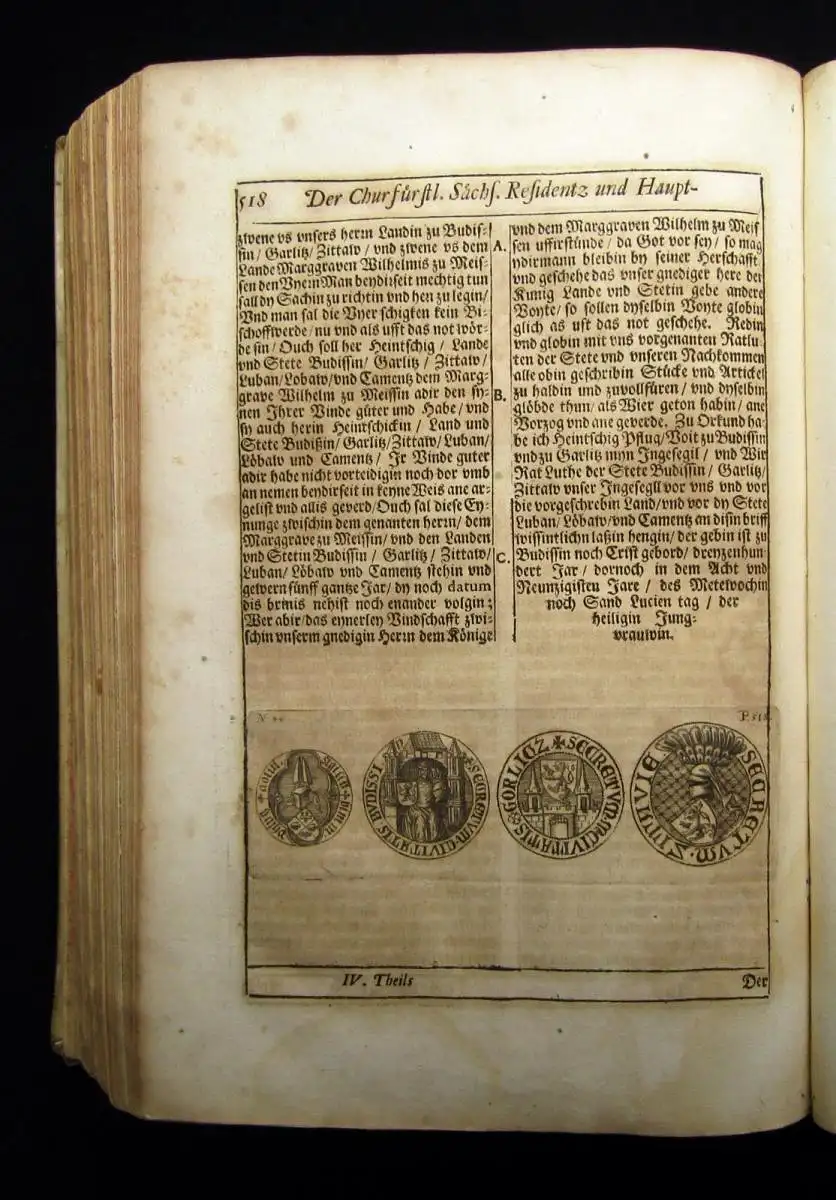 518 Der Churfürstl. Sächs. Residentz und Haupt-
zwene vs vnsers herrn Landin zu Budis-
sin/ Garlitz/ Zittaw / vnd zwene vs dem
Lande Marggraven Wilhelmis zu Meis-
sen den Vneim Man beydirseit mechtig tun
sall dy Sachin zu richtin vnd hen zu legin/
Vnd man sal die Vyer schigten kein Bi-
schoffwerde / nu vnd als ufft das not wör-
de sin / Ouch soll her Heintschig / Lande
vnd Stete Budissin/ Garlitz / Zittaw/
Luban/ Lobaw/ vnd Camentz dem Marg-
grave Wilhelm zu Meissin adir den sy-
nen Ihrer Vinde güter und Habe / vnd
sy auch herin Heintschickin / Land und
Stete Budißin/ Garlitz/ Zittaw/ Luban/
Löbaw und Camentz / Ir Vinde guter
adir habe nicht vorteidigin noch dor vmb
an nemen beydirseit in keyne Weis ane ar-
gelist vnd allis geverd/ Ouch sal diese Ey-
nunge zwischin dem genanten herrn / dem
Marggrave zu Meissin/ vnd den Landen
vnd Stetin Budissin / Garlitz / Zittaw/
Luban/ Löbaw vnd Camentz stehin vnd
gewern fünff gantze Jar/ dy noch datum
dis brivis nehist noch enander volgin;
Wer abir/ das eynerley Vindschafft zwi-
schin vnserm gnedigin Herrn dem Könige
A.
B.
C.
vnd dem Marggraven Wilhelm zu Meis
sen uffirstünde / da Got vor sey / so mag
ydirmann bleibin by seiner Herschafft
vnd geschehe das vnser gnediger here der
Kunig Lande vnd Stetin gebe andere
Voyte / so sollen dyselbin Voyte globin
glich as uft das not geschehe. Redin
vnd globin mit vns vorgenanten Ratlu-
ten der Stete vnd vnseren Nachkommen
alle obin geschribin Stücke vnd Artickel
zu haldin und zuvollfüren / vnd dyselbin
glöbde thun / als Wier geton habin / ane
Vorzog vnd ane geverde. Zu Orkund ha-
be ich Heintschig Pflug / Voit zu Budissin
vnd zu Garlitz myn Ingesegil / vnd Wir
Rat Luthe der Stete Budissin / Garlitz/
Zittaw vnser Ingesegll vor vns vnd vor
die vorgeschrebin Land / vnd vor dy Stete
Luban/ Löbaw/ vnd Camentz an disin briff
wissintlichn laßin hengin / der gebin ist zu
Budissin noch Crist gebord / dreyzenhun-
dert Jar / dornoch in dem Acht vnd
Neunzigisten Jare / des Metewochin
noch Sand Lucien tag / der
heiligin Jung-
vrauwin.
P. 518
SECRETVM CIVITATIS BVDISSI
SECRETVM CIVITATIS GORLICZ
SECRETVM
IV. Theils Der